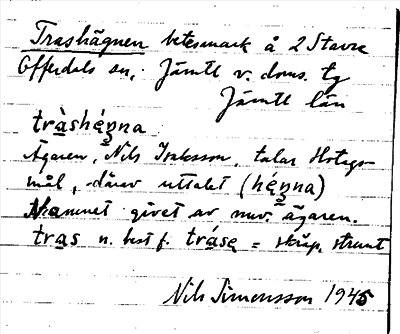 Trashägnen betesmark å 2 Stavre
Offerdals sn, Jämtl v. doms. tg
Jämtl län
tràshę́nna
Ägaren, Nils Isaksson, talar Hotagsmål, därav uttalet (hę́nna)
Namnet givet av nuv. ägaren.
tras n. best f. tráse = skräp, strunt
Nils Simonsson 1945